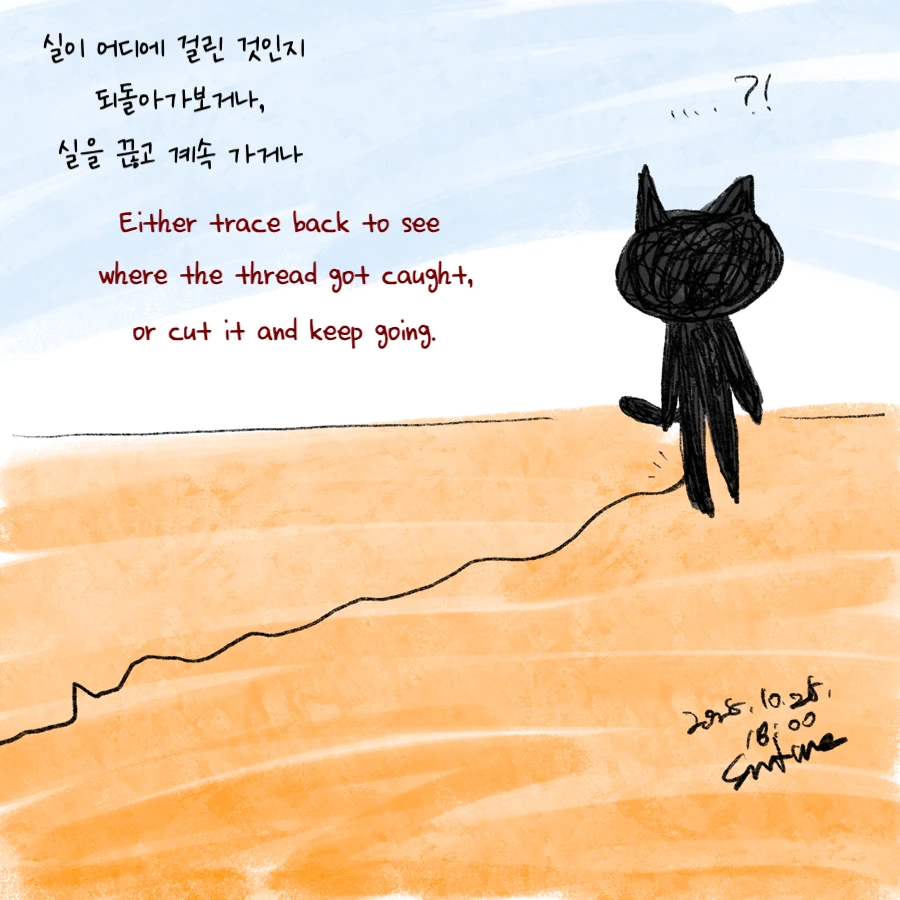 실이 어디에 걸린 것인지
되돌아가보거나,
실을 끊고 계속 가거나
.... ?!
Either trace back to see
where the thread got caught,
or cut it and keep going.
2025.10.25.
18:00